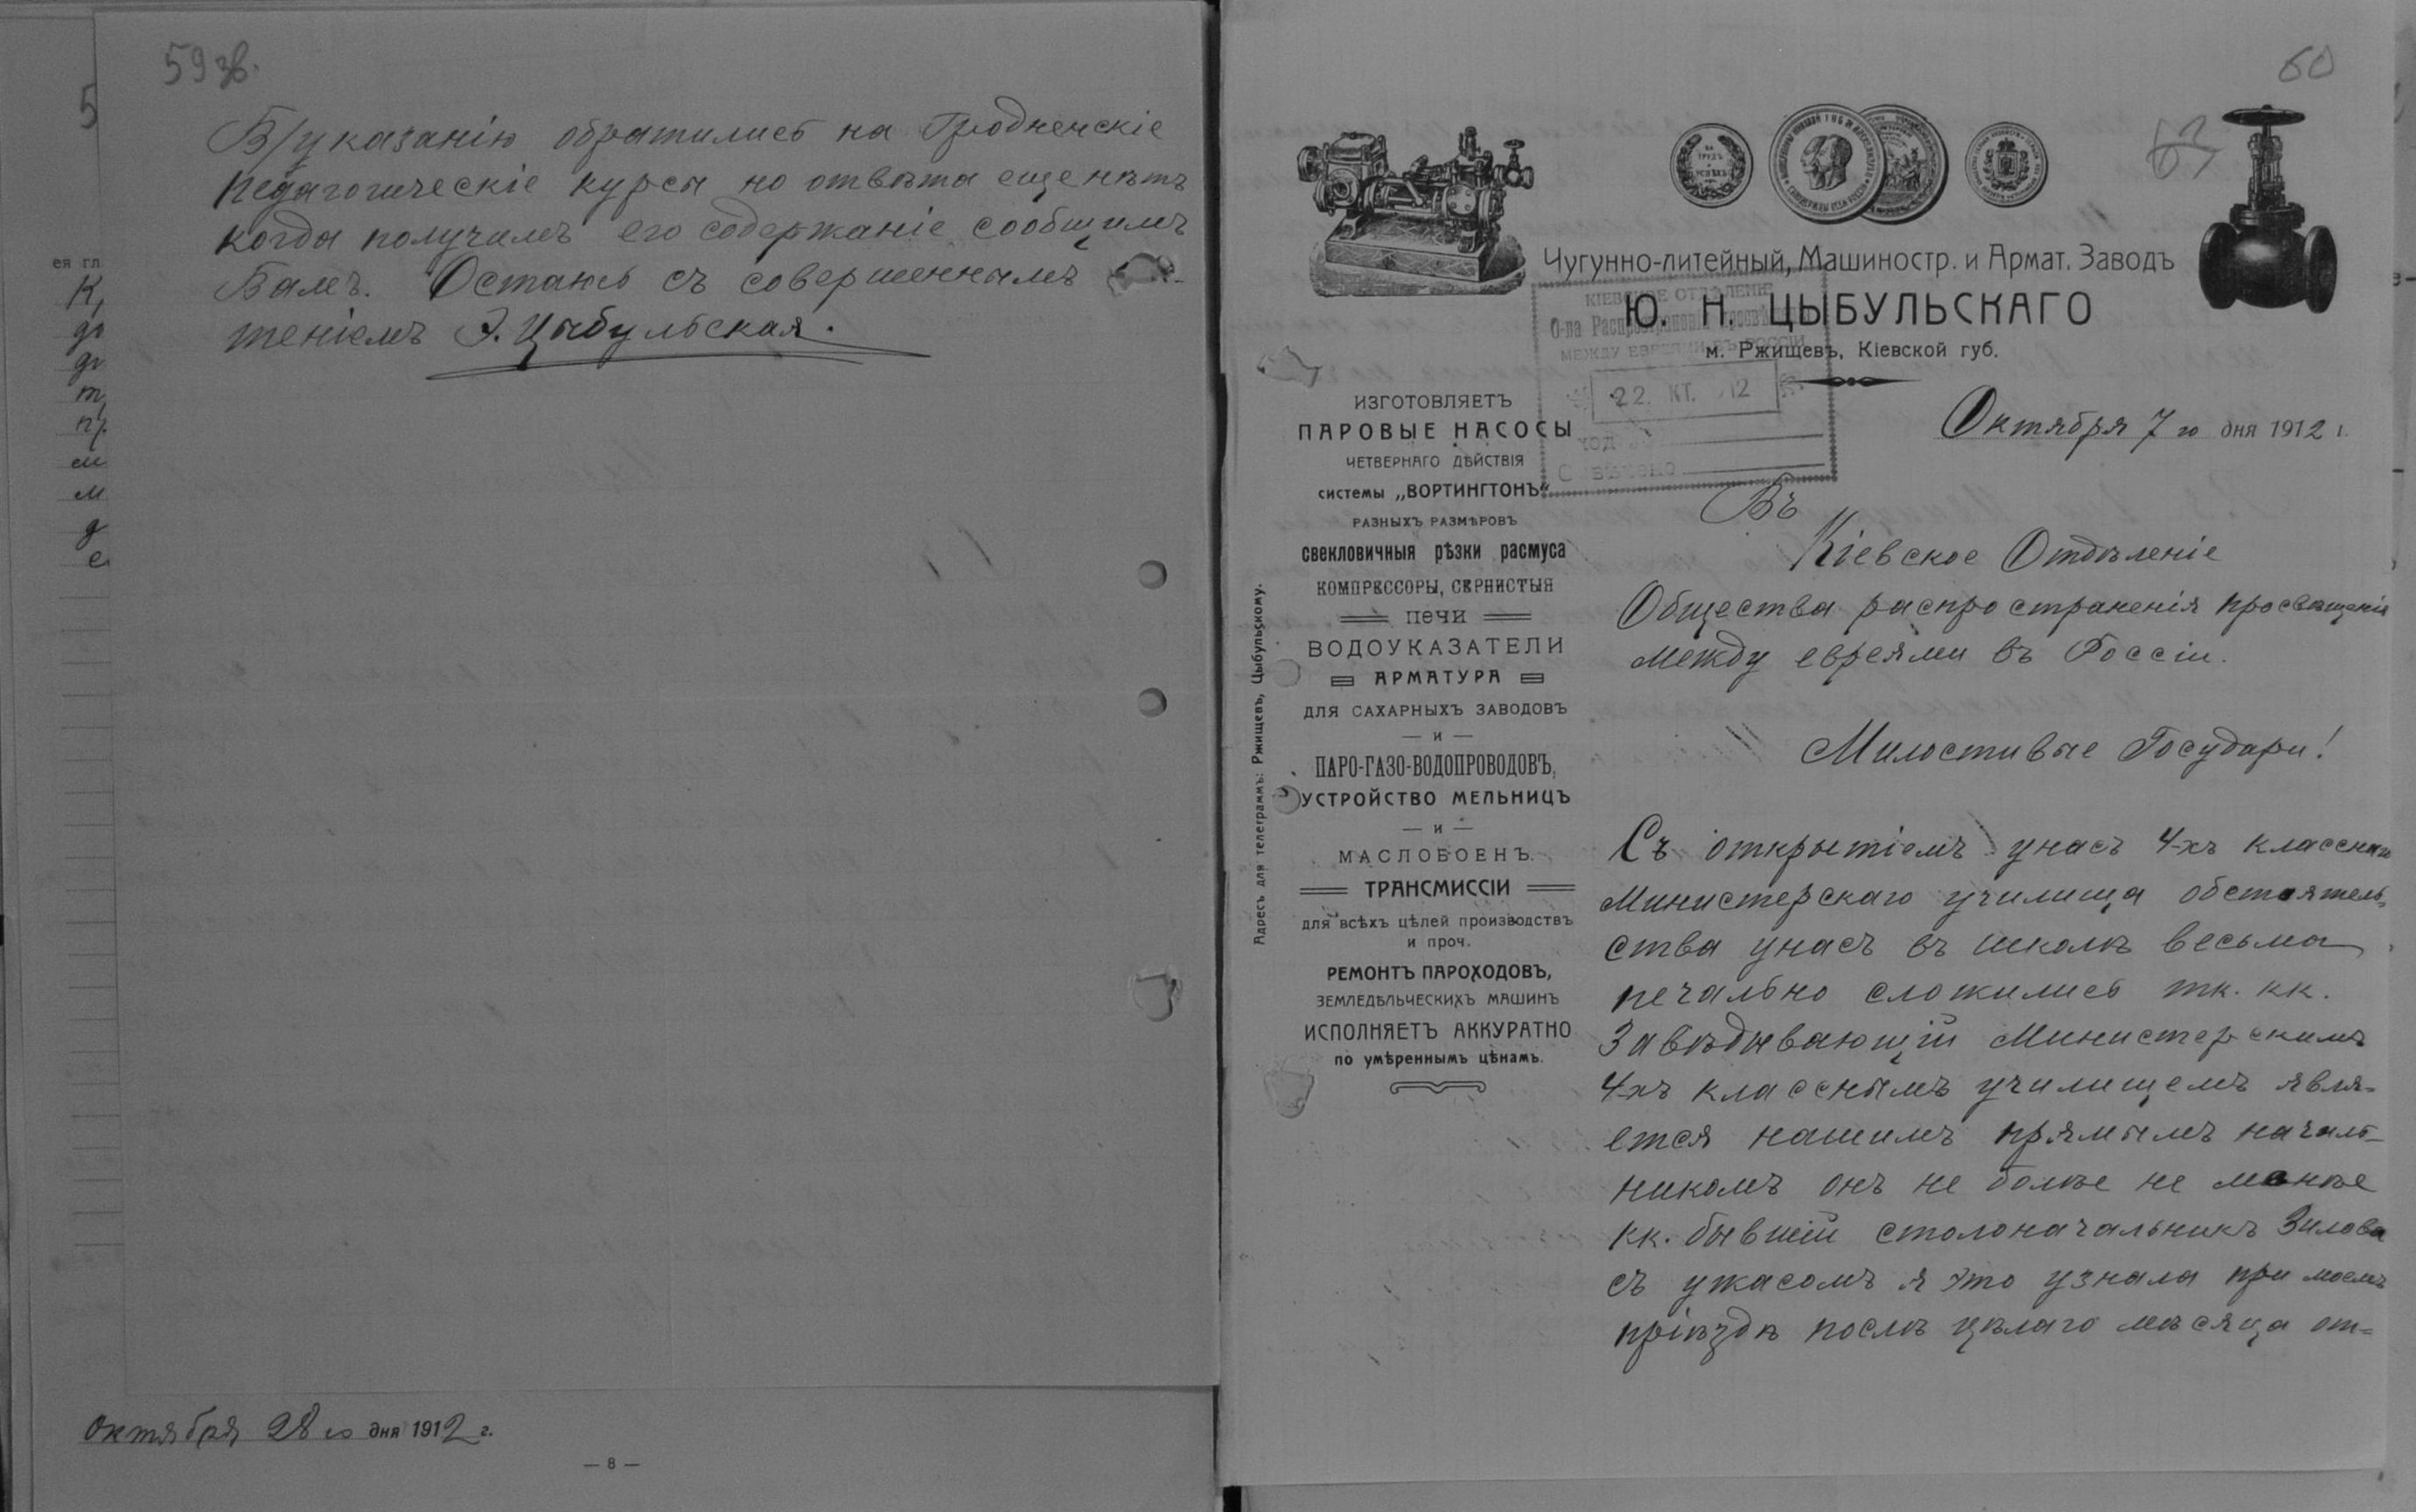 59 зв.
5
В/указанію обратились на Гродненскіе
педагогическіе курсы но отвѣта еще нѣтъ
когда получимъ его содержаніе сообщимъ
Вамъ. Остаюсь съ совершеннымъ
теніемъ Э. Цыбульская.
ея гл
октября 28 го дня 1912 г.
— 8 —
60
63
Чугунно-литейный, Машиностр. и Армат. Заводъ
Ю. Н. ЦЫБУЛЬСКАГО
м. Ржищевъ, Кіевской губ.
КІЕВСКОЕ ОТДѢЛЕНІЕ
О-ва Распространенія Просвѣщенія
МЕЖДУ ЕВРЕЯМИ ВЪ РОССІИ
22. КТ. 12
Октября 7 го дня 1912 г.
ИЗГОТОВЛЯЕТЪ
ПАРОВЫЕ НАСОСЫ
ЧЕТВЕРНАГО ДѢЙСТВІЯ
системы „ВОРТИНГТОНЪ“
РАЗНЫХЪ РАЗМѢРОВЪ
свекловичныя рѣзки расмуса
КОМПРЕССОРЫ, СЕРНИСТЫЯ
ПЕЧИ
ВОДОУКАЗАТЕЛИ
АРМАТУРА
ДЛЯ САХАРНЫХЪ ЗАВОДОВЪ
— и —
ПАРО-ГАЗО-ВОДОПРОВОДОВЪ,
УСТРОЙСТВО МЕЛЬНИЦЪ
— и —
МАСЛОБОЕНЪ.
ТРАНСМИССІИ
для всѣхъ цѣлей производствъ
и проч.
РЕМОНТЪ ПАРОХОДОВЪ,
ЗЕМЛЕДѢЛЬЧЕСКИХЪ МАШИНЪ
ИСПОЛНЯЕТЪ АККУРАТНО
по умѣреннымъ цѣнамъ.
Адресъ для телеграммъ: Ржищевъ, Цыбульскому.
Въ
Кіевское Отдѣленіе
Общества распространенія просвѣщенія
между евреями въ Россіи.
Милостивые Государи!
Съ открытіемъ унасъ 4-хъ класснаго
Министерскаго училища обстоятель-
ства унасъ въ школѣ весьма
печально сложились тк. кк.
Завѣдывающій Министерскимъ
4-хъ класснымъ училищемъ явля-
ется нашимъ прямымъ началь-
никомъ онъ не болѣе не менѣе
кк. бывшій столоначальникъ Зилова
съ ужасомъ я это узнала при моемъ
пріѣздѣ послѣ цѣлаго мѣсяца от-